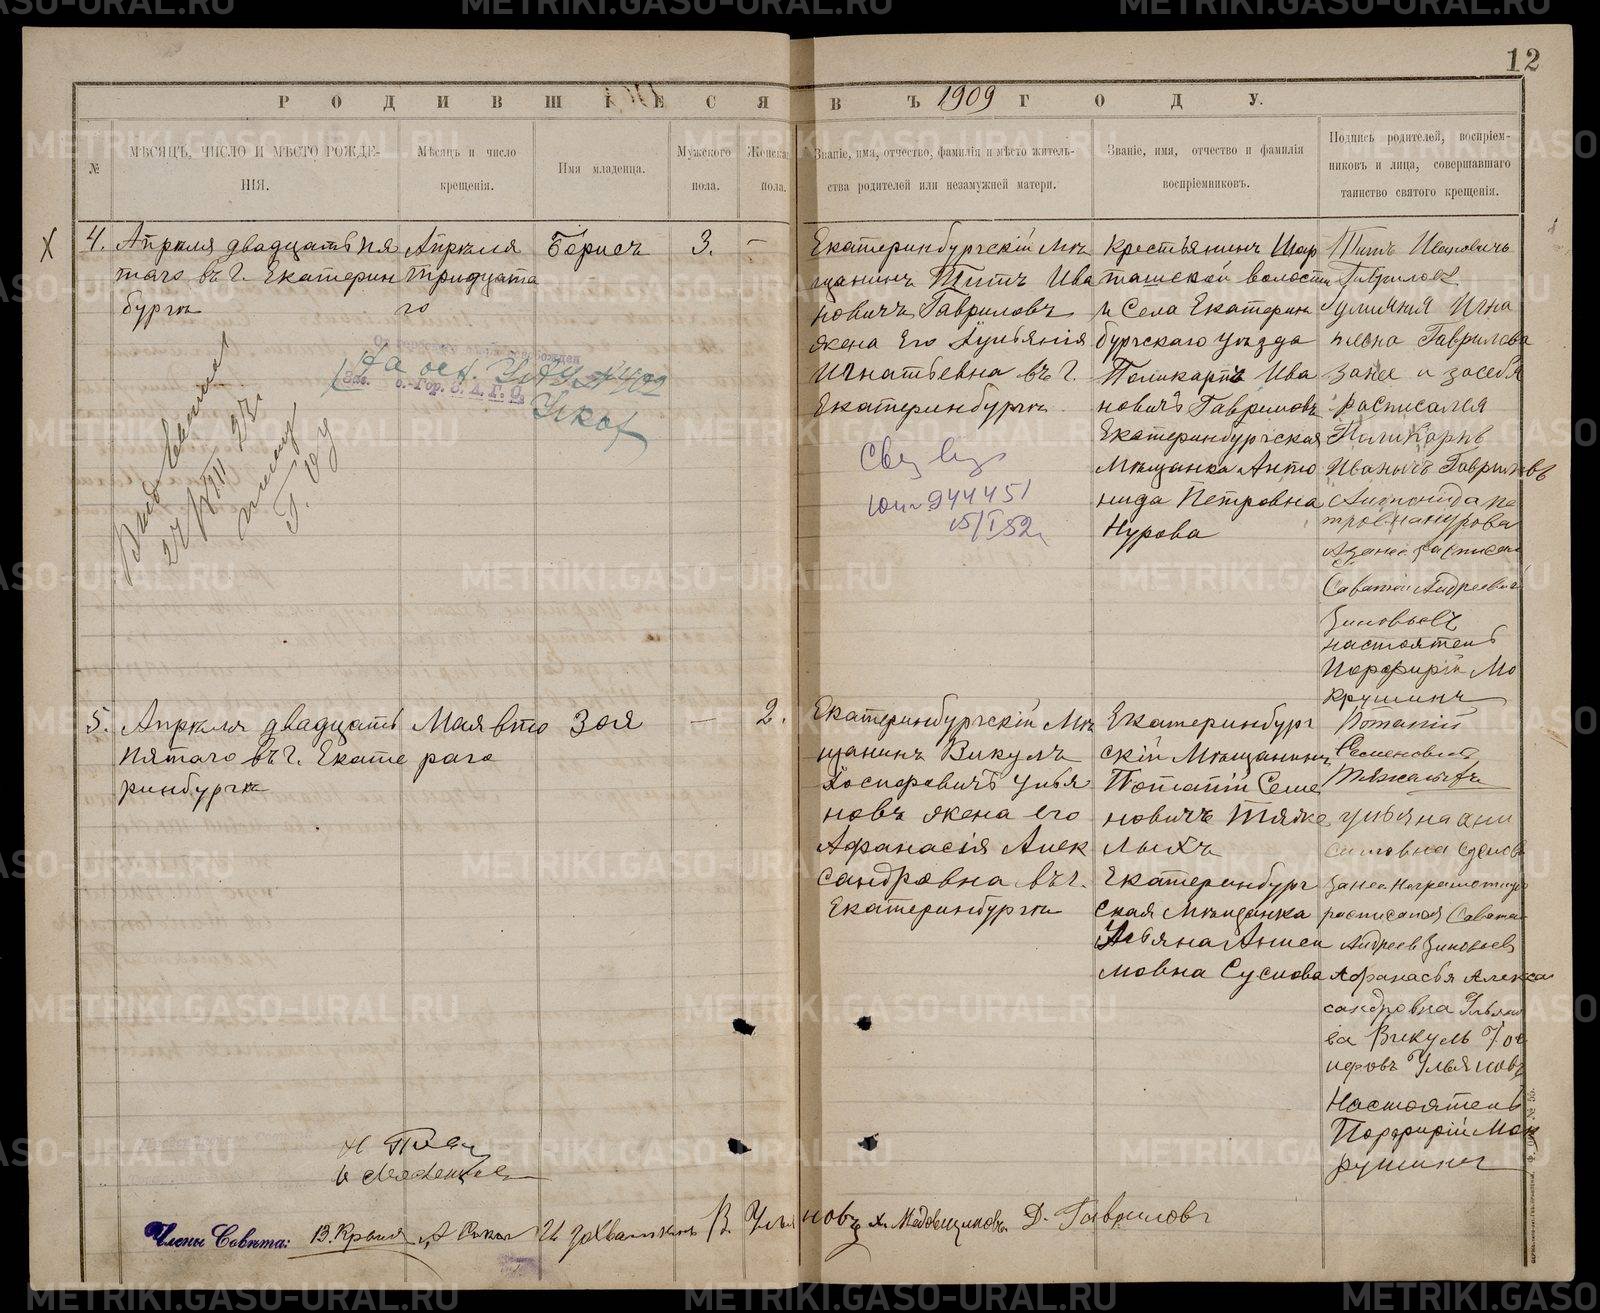 12
РОДИВШІЕСЯ ВЪ 1909 ГОДУ.
№
МѢСЯЦЪ, ЧИСЛО И МѢСТО РОЖДЕ-
НІЯ.
Мѣсяцъ и число
крещенія.
Имя младенца.
Мужского
пола.
Женска
пола.
Званіе, имя, отчество, фамилія и мѣсто житель-
ства родителей или незамужней матери.
Званіе, имя, отчество и фамилія
воспріемниковъ.
Подпись родителей, воспріем-
никовъ и лица, совершавшаго
таинство святого крещенія.
4.
Апрѣля двадцать пя
таго въ г. Екатерин
бургѣ
Апрѣля
тридцата
го
Борисъ
3.
—
Екатеринбургскій Мѣ
щанинъ Титъ Ива
новичъ Гавриловъ
жена его Іульянія
Игнатьевна въ г.
Екатеринбургѣ
Крестьянинъ Шар
ташской волости
и Села Екатерин
бургскаго уѣзда
Поликарпъ Ива
новичъ Гавриловъ
Екатеринбургская
Мѣщанка Анто
нида Петровна
Нурова
Титъ Ивановичъ
Гавриловъ
улияния Игна
тьевна Гаврилова
за нее и за себя
росписался
Поликарпъ
Иванычъ Гавриловъ
Антонида пе
тровна нурова
Саватий Андреевичъ
Зиновьевъ
настоятель
Порфирій Мо
крушинъ
944451
15/I 52г
5.
Апрѣля двадцать
пятаго въ г. Екате
ринбургѣ
Мая вто
раго
Зоя
—
2.
Екатеринбургскій Мѣ
щанинъ Викулъ
Іосифовичъ Улья
новъ жена его
Афанасія Алек
сандровна въ г.
Екатеринбургѣ
Екатеринбург
скій Мѣщанинъ
Потапій Семе
новичъ Тяже
лыхъ
Екатеринбург
ская Мѣщанка
Ульяна Аниси
мовна Суслова
Потапий
Семеновичъ
Тяжелыхъ
ульяна ани
симовна суслова
за нея неграмотную
росписался Саватий
Андреев Зиновьев
Афанасья Алекса
сандровна Ульяно
ва Викулъ Іос
ифовъ Ульяновъ
Настоятель
Порфирій Мок
рушинъ
Члены Совѣта:
В. Ульяновъ
Д. Гавриловъ
METRIKI.GASO-URAL.RU